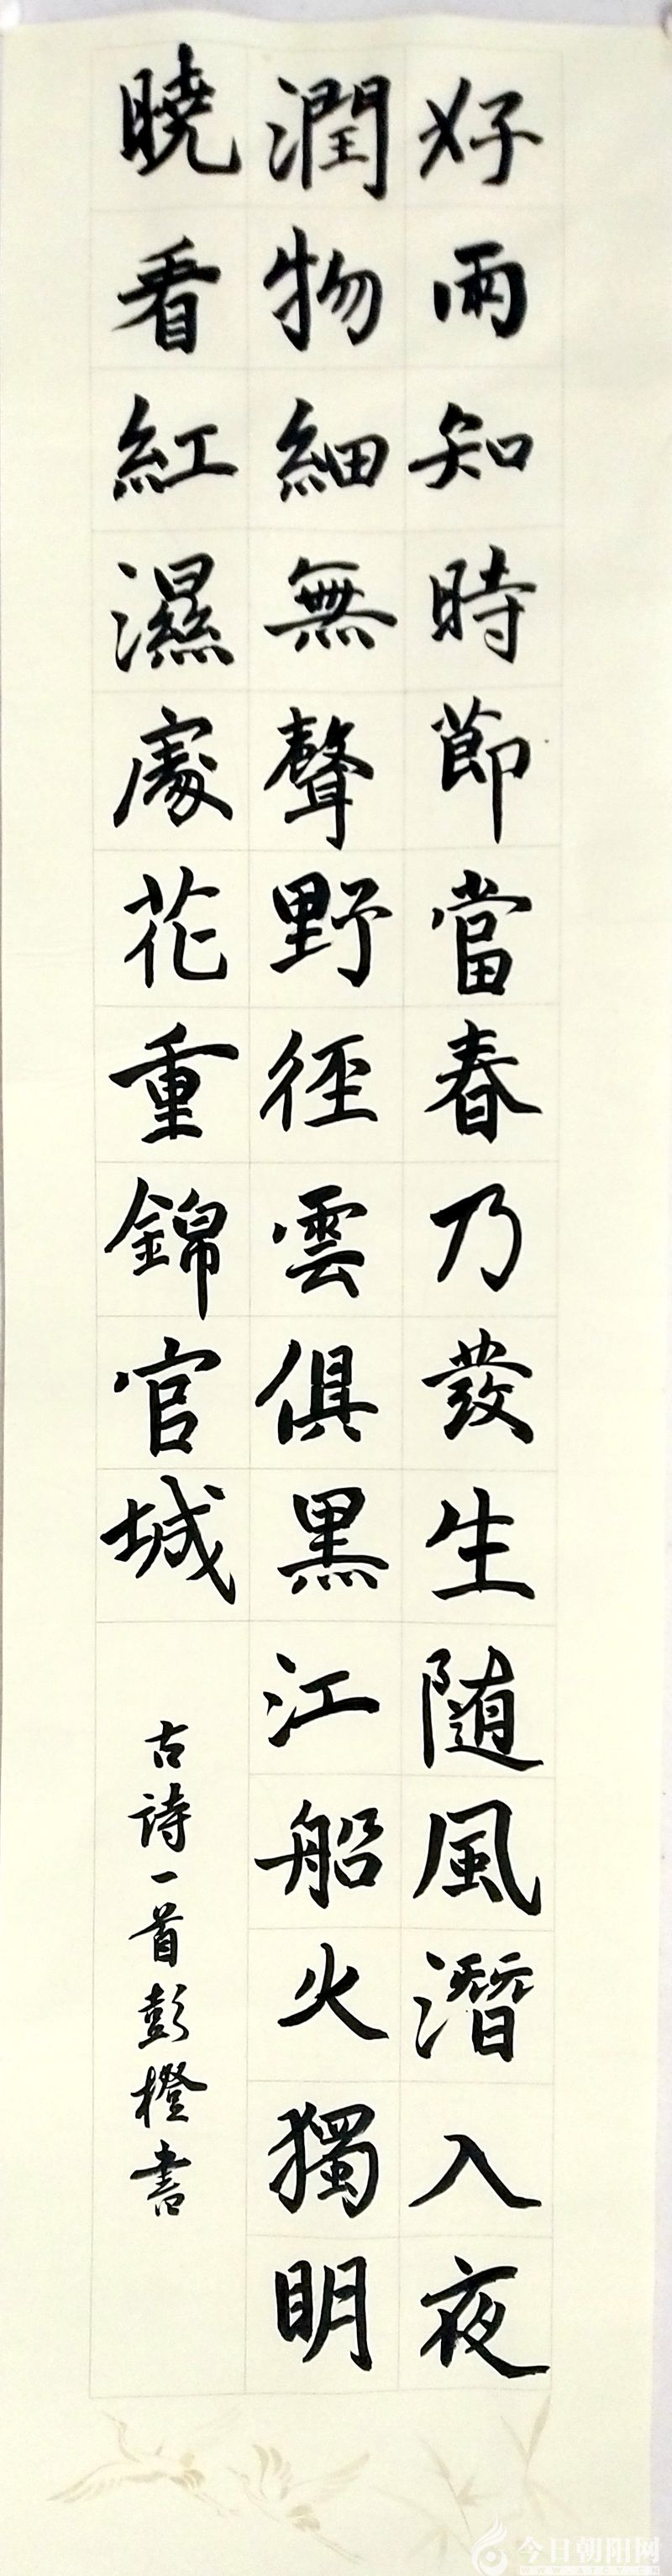 好雨知時節當春乃發生随風潛入夜
潤物細無聲野徑雲俱黑江船火獨明
曉看紅濕處花重錦官城
古詩一首彭橙書
今日朝阳网